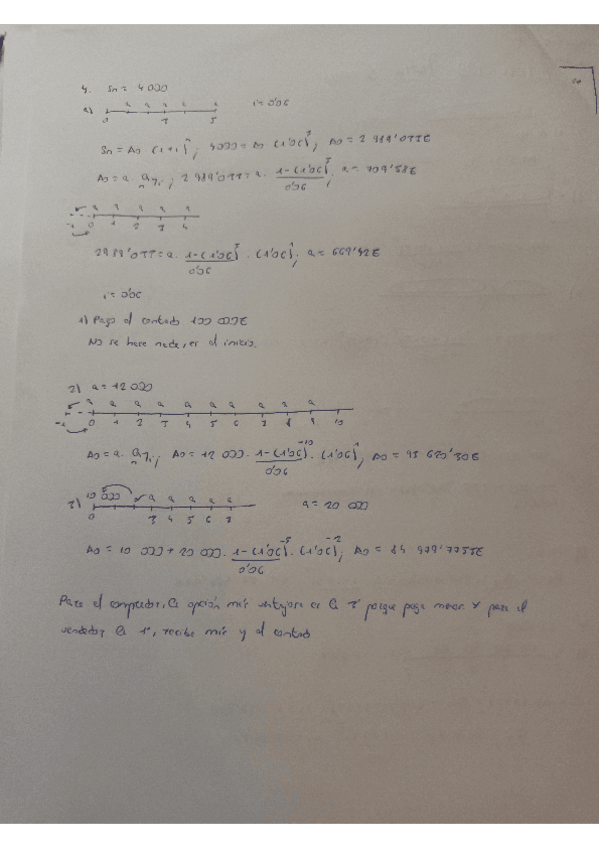 4. Sn = 4000
a) a a a a a i = 0'06
0 3 5
Sn = A0 (1+i)^n; 4000 = A0 (1'06)^5; A0 = 2 989'033€
A0 = a · a n¬i; 2 989'033 = a · 1-(1'06)^-5 / 0'06; a = 709'58€
a a a a a
-1 0 1 2 3 4
2989'033 = a · 1-(1'06)^-5 / 0'06 · (1'06)^1; a = 669'42€
i = 0'06
1) Pago al contado 100 000€
No se hace nada, es el inicio.
2) a = 12 000
a a a a a a a a a a
-1 0 1 2 3 4 5 6 7 8 9 10
A0 = a · a n¬i; A0 = 12 000 · 1-(1'06)^-10 / 0'06 · (1'06)^1; A0 = 93 620'30€
3) 10 000 a a a a a a = 20 000
0 3 4 5 6 7
A0 = 10 000 + 20 000 · 1-(1'06)^-5 / 0'06 · (1'06)^-2; A0 = 84 979'7755€
Para el comprador, la opción más ventajosa es la 3ª porque paga menos. Y para el
vendedor, la 1ª, recibe más y al contado